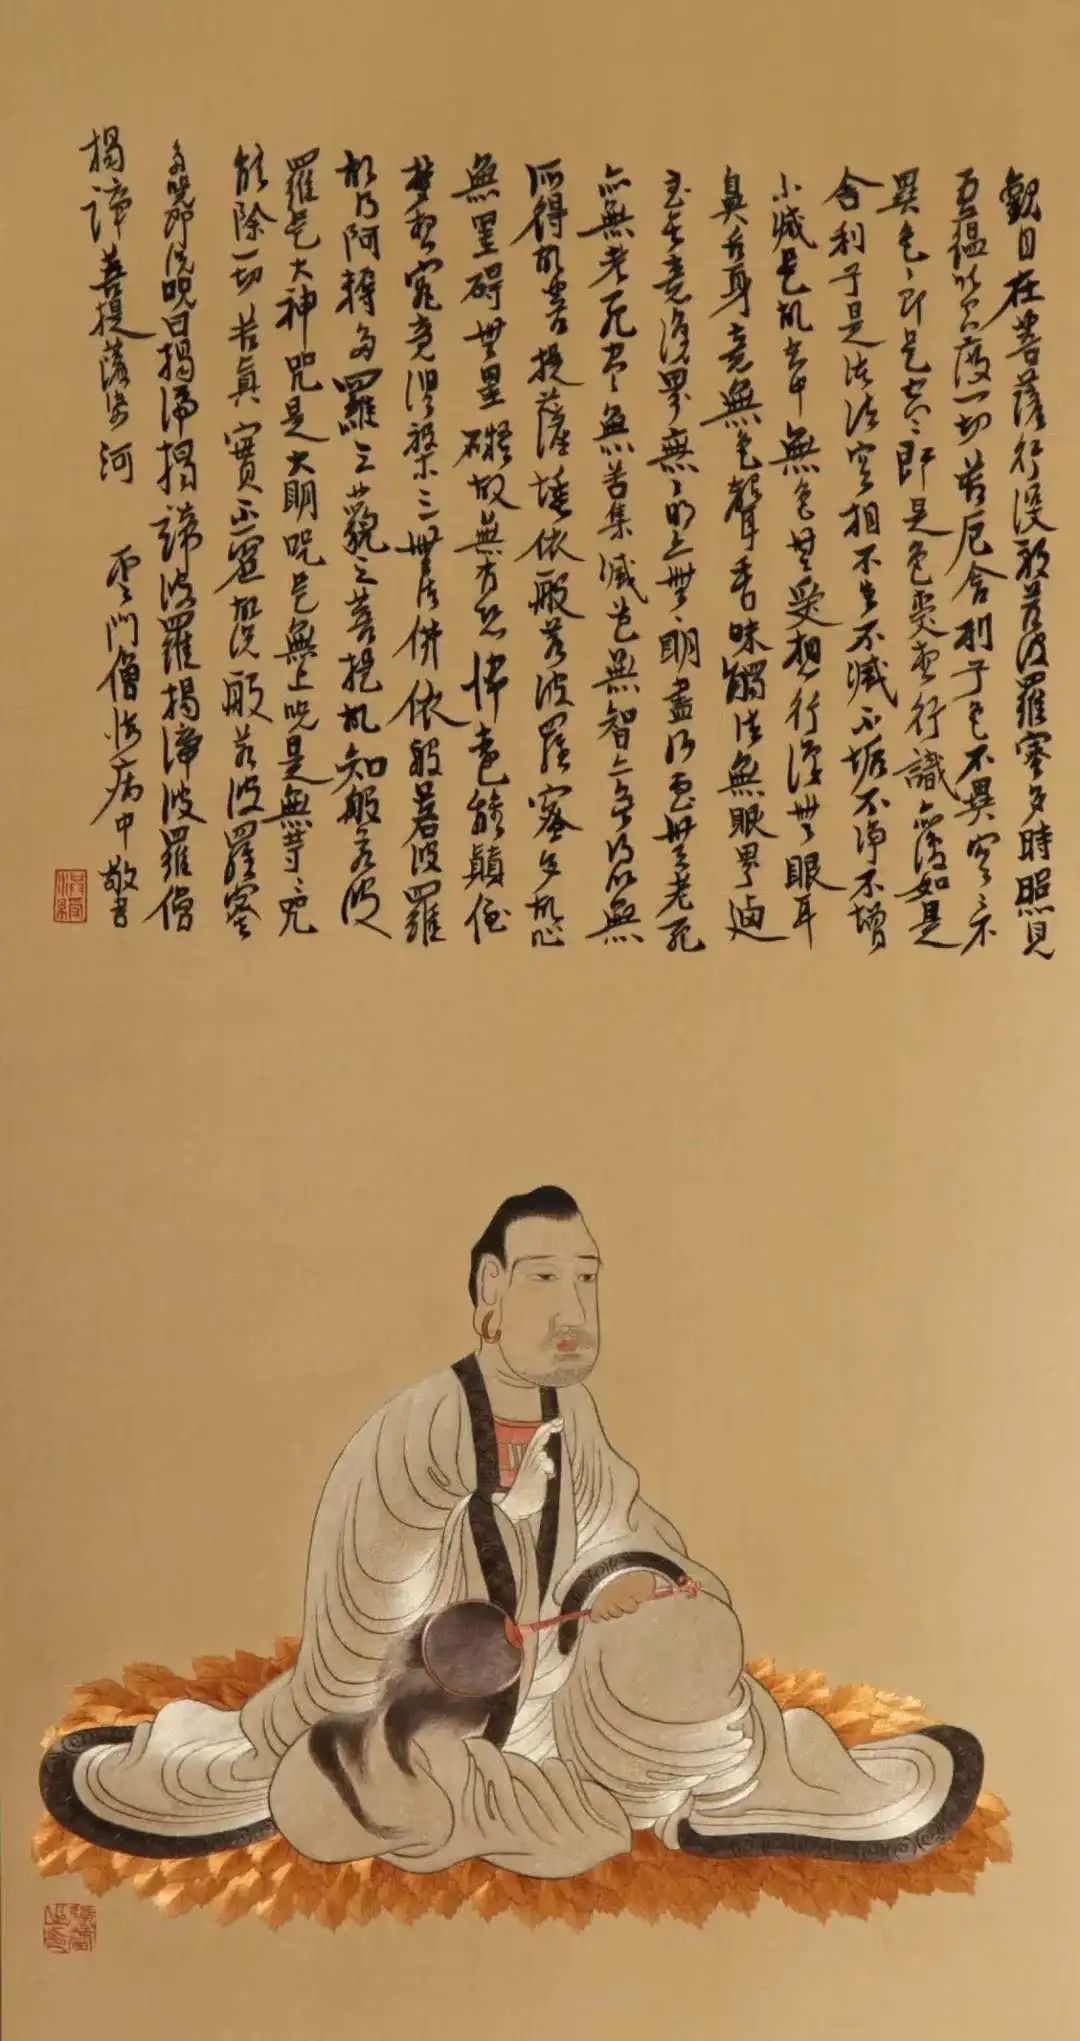 觀自在菩薩行深般若波羅蜜多時照見
五蘊皆空度一切苦厄舍利子色不異空〻不
異色〻即是空〻即是色受想行識亦復如是
舍利子是諸法空相不生不滅不垢不淨不增
不減是故空中無色無受想行識無眼耳
鼻舌身意無色聲香味觸法無眼界迺
至無意識界無〻明亦無〻明盡乃至無老死
亦無老死盡無苦集滅道無智亦無得以無
所得故菩提薩埵依般若波羅蜜多故心
無罣礙無罣礙故無有恐怖遠離顛倒
夢想究竟涅槃三世諸佛依般若波羅
故乃阿耨多羅三藐三菩提故知般若波
羅是大神咒是大明咒是無上咒是無等〻咒
能除一切苦真實不虛故說般若波羅蜜
多咒即說咒曰揭諦揭諦波羅揭諦波羅僧
揭諦菩提薩婆訶 雲門僧 病中敬書